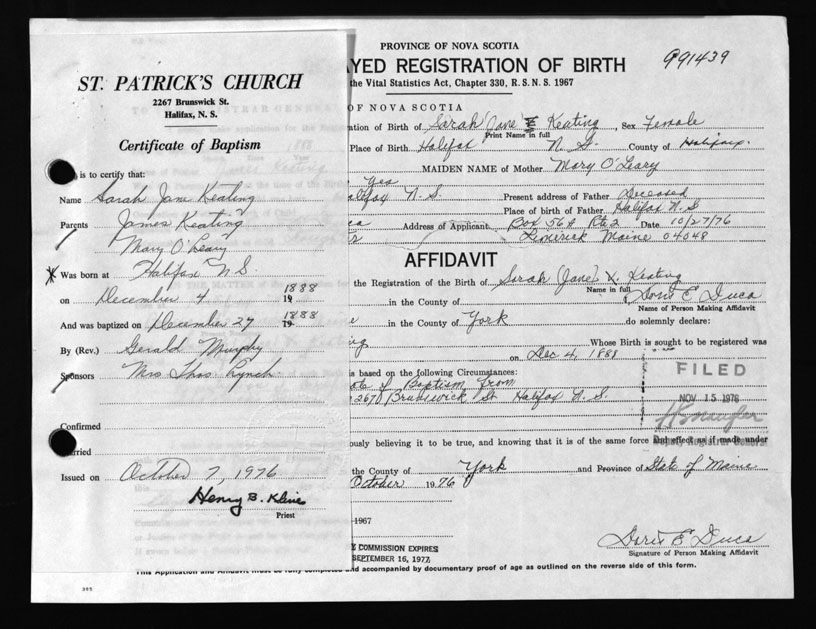 ST. PATRICK'S CHURCH
2267 Brunswick St.
Halifax, N. S.
Certificate of Baptism
is to certify that:
Name Sarah Jane Keating
Parents James Keating
Mary O'Leary
Was born at Halifax N S.
on December 4 1888 19
And was baptized on December 27 1888 19
By (Rev.) Gerald Murphy
Sponsors Mrs Thos Lynch
Confirmed
Married
Issued on October 7, 1976
Henry B. Kline
Priest
PROVINCE OF NOVA SCOTIA
991439
AYED REGISTRATION OF BIRTH
the Vital Statistics Act, Chapter 330, R. S. N. S. 1967
OF NOVA SCOTIA
ation of Birth of Sarah (Jane) Keating, Sex Female
Print Name in full
Place of Birth Halifax N. S. County of Halifax.
MAIDEN NAME of Mother Mary O'Leary
Yes
alifax N. S. Present address of Father Deceased
Place of birth of Father Halifax N S
Address of Applicant Box 56A Rt 2 Date 10/27/76
Limerick Maine 04048
AFFIDAVIT
the Registration of the Birth of Sarah (Jane) Keating
Name in full
in the County of Doris E Duca
Name of Person Making Affidavit
in the County of York do solemnly declare:
ing Whose Birth is sought to be registered was
on Dec 4, 1888
is based on the following Circumstances:
of Baptism from
2267 Brunswick St Halifax N. S.
FILED
NOV 15 1976
ously believing it to be true, and knowing that it is of the same force and effect as if made under
the County of York and Province of State of Maine
October 1976
1967
Y COMMISSION EXPIRES
SEPTEMBER 16, 1977
Doris E Duca
Signature of Person Making Affidavit
This Application and Affidavit must be fully completed and accompanied by documentary proof of age as outlined on the reverse side of this form.